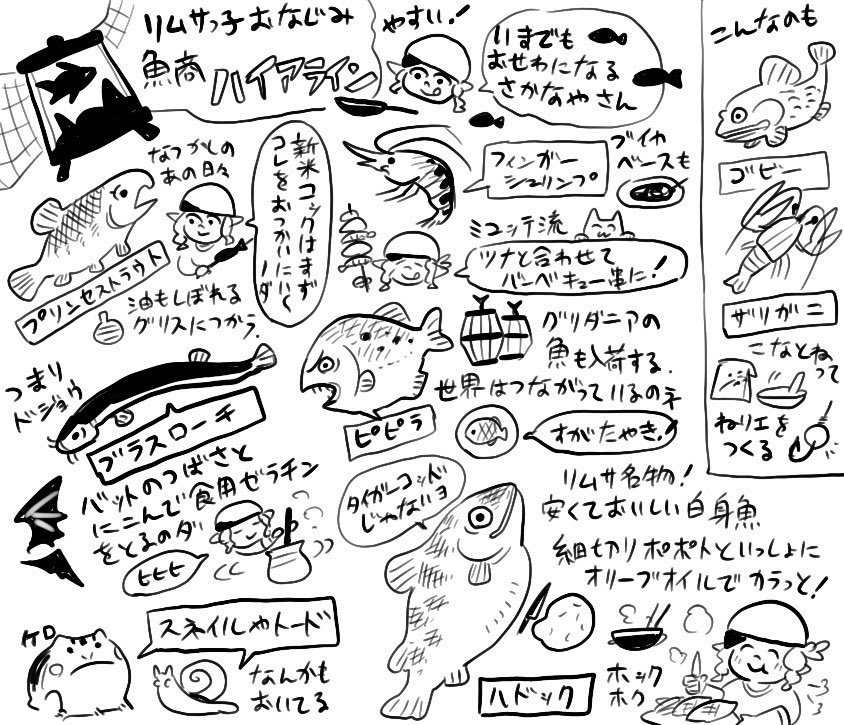 リムサっ子おなじみ
魚商ハイアライン
やすい!
いまでも
おせわになる
さかなやさん
こんなのも
なつかしの
あの日々
新米コックはまず
コレをおつかいにいく
ノダ
プリンセストラウト
油もしぼれる
グリスにつかう.
フィンガー
シュリンプ
ブイヤ
ベースも
ミコッテ流
ツナと合わせて
バーベキュー串に!
ゴビー
ザリガニ
こなとねって
ねりエを
つくる
つまり
ドジョウ
ブラスローチ
グリダニアの
魚も入荷する.
世界はつながっているのネ
ピピラ
すがたやき!
バットのつばさと
にこんで食用ゼラチン
をとるのダ
ヒヒヒ
タイガーコッド
じゃないヨ
リムサ名物!
安くておいしい白身魚
細切りポポトといっしょに
オリーブオイルでカラっと!
ケロ
スネイルやトード
なんかも
おいてる
ハドック
ホック
ホク